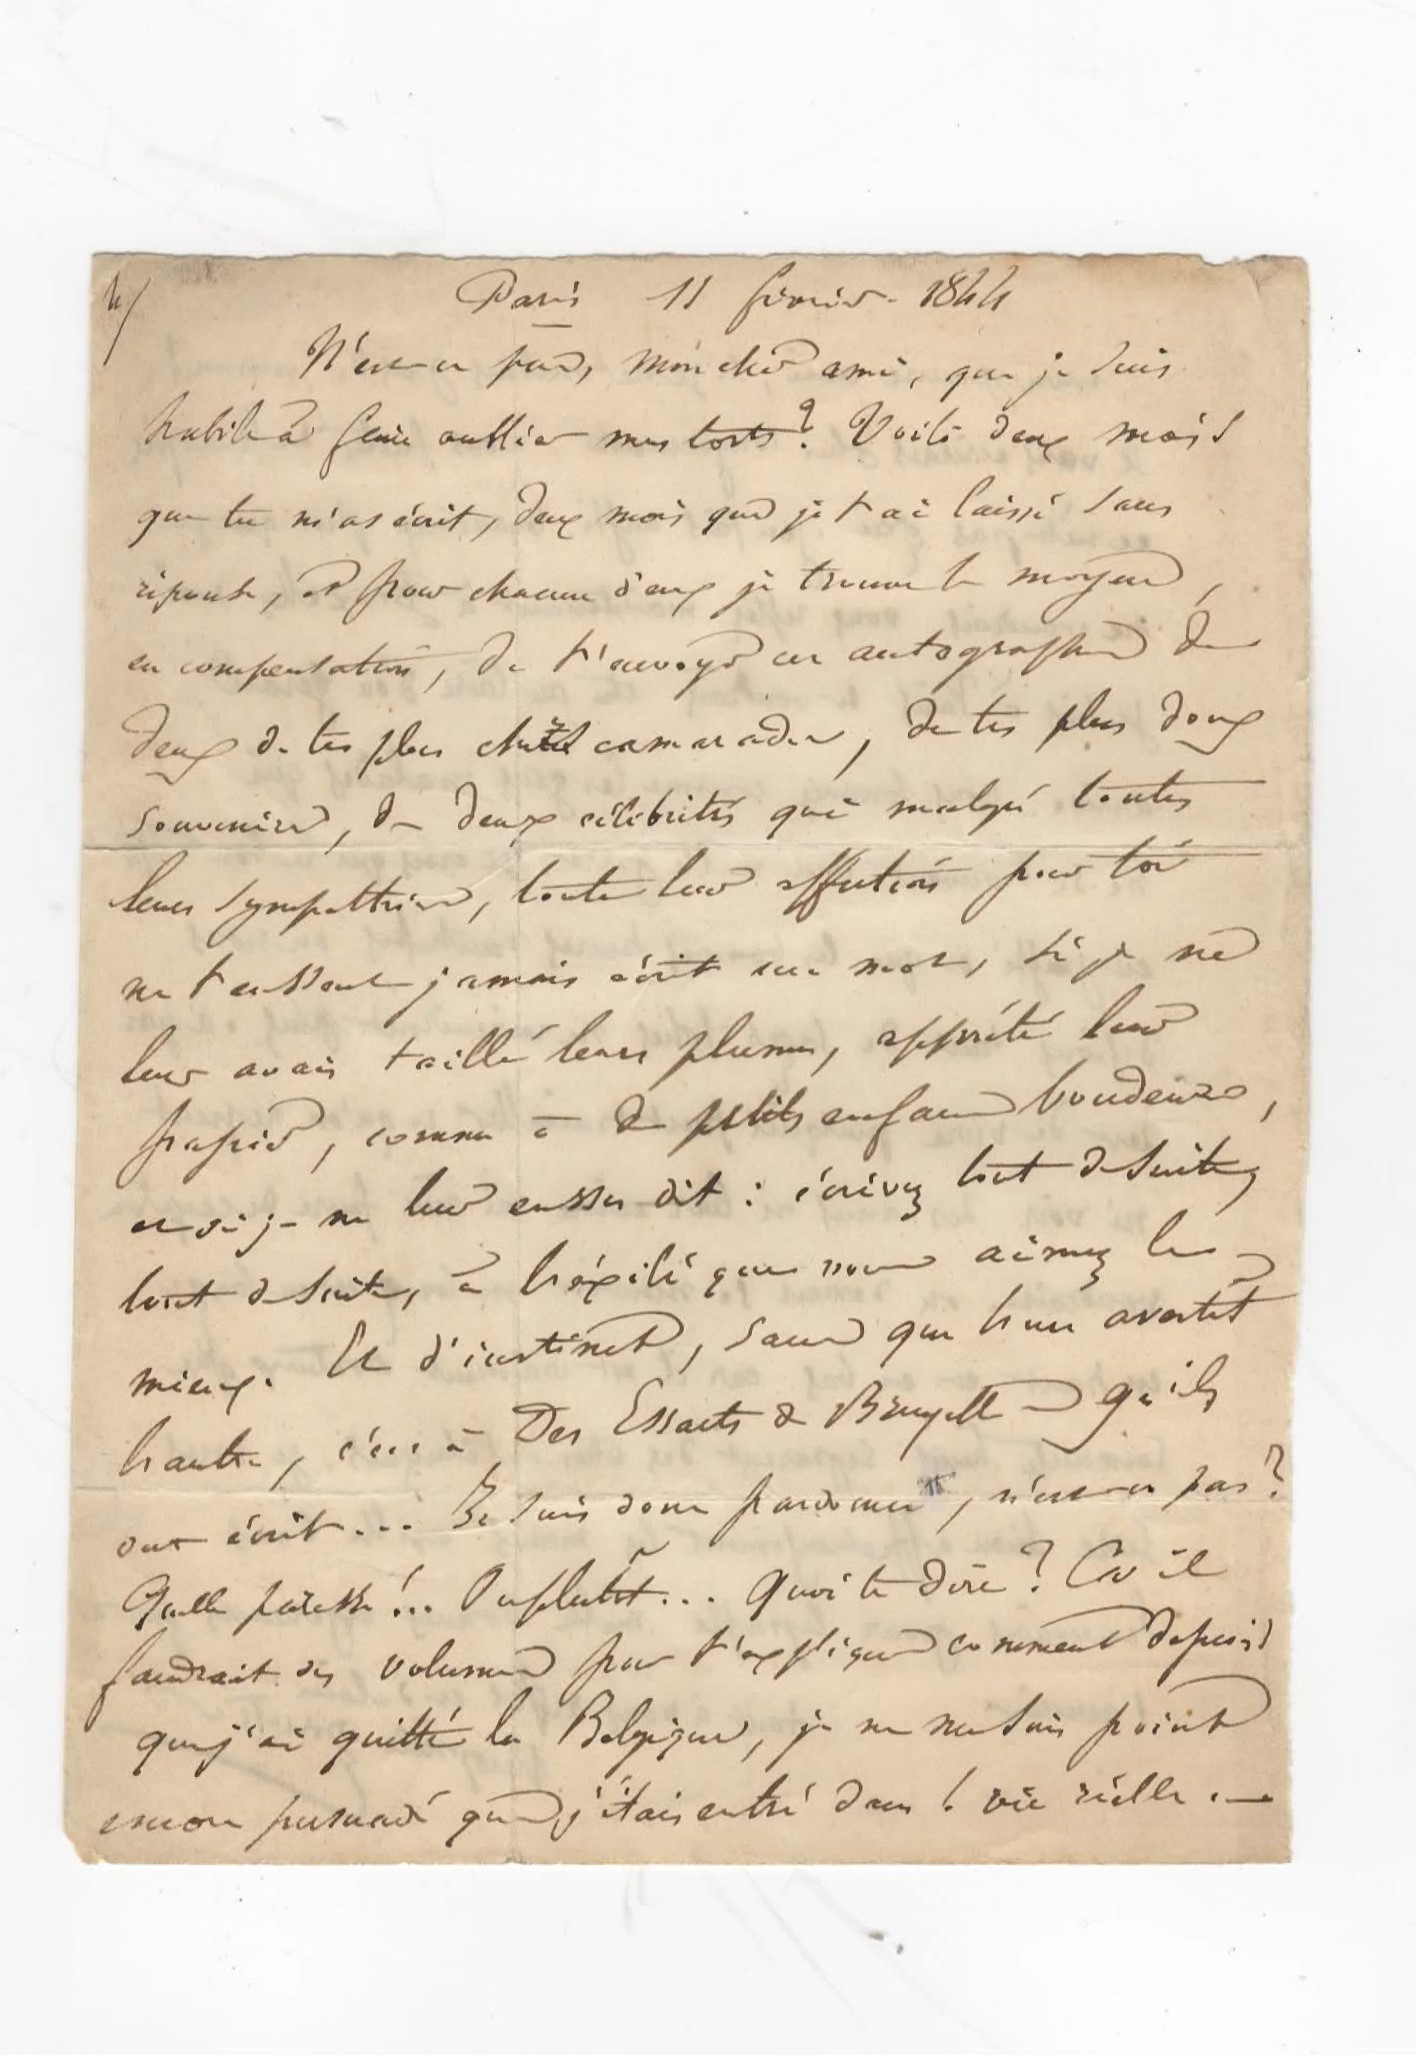 4/
Paris 11 février 1844
N'est-ce pas, mon cher ami, que je suis
habile à faire oublier mes torts ? Voilà deux mois
que tu m'as écrit, deux mois que je t'ai laissé sans
réponse, et pour chacun d'eux je trouve le moyen,
en compensation, de t'envoyer un autographe de
deux de tes plus chers camarades, de tes plus doux
souvenirs, de deux célébrités qui malgré toutes
leurs sympathies, toute leur affection pour toi
ne t'eussent jamais écrit un mot, si je ne
leur avais taillé leurs plumes, apprêté leur
papier, comme à de petits enfans boudeurs,
et si je ne leur eusse dit : écrivez tout de suite,
tout de suite, à l'exilé que vous aimez le
mieux. Et d'instinct, sans que l'un avertît
l'autre, c'est à Des Essarts de Bruxelles qu'ils
ont écrit... Je suis donc pardonné, n'est-ce pas ?
Quelle paresse !.. Ou plutôt... quoi te dire ? Car il
faudrait des volumes pour t'expliquer comment depuis
que j'ai quitté la Belgique, je ne me suis point
encore persuadé que j'étais entré dans la vie réelle. —